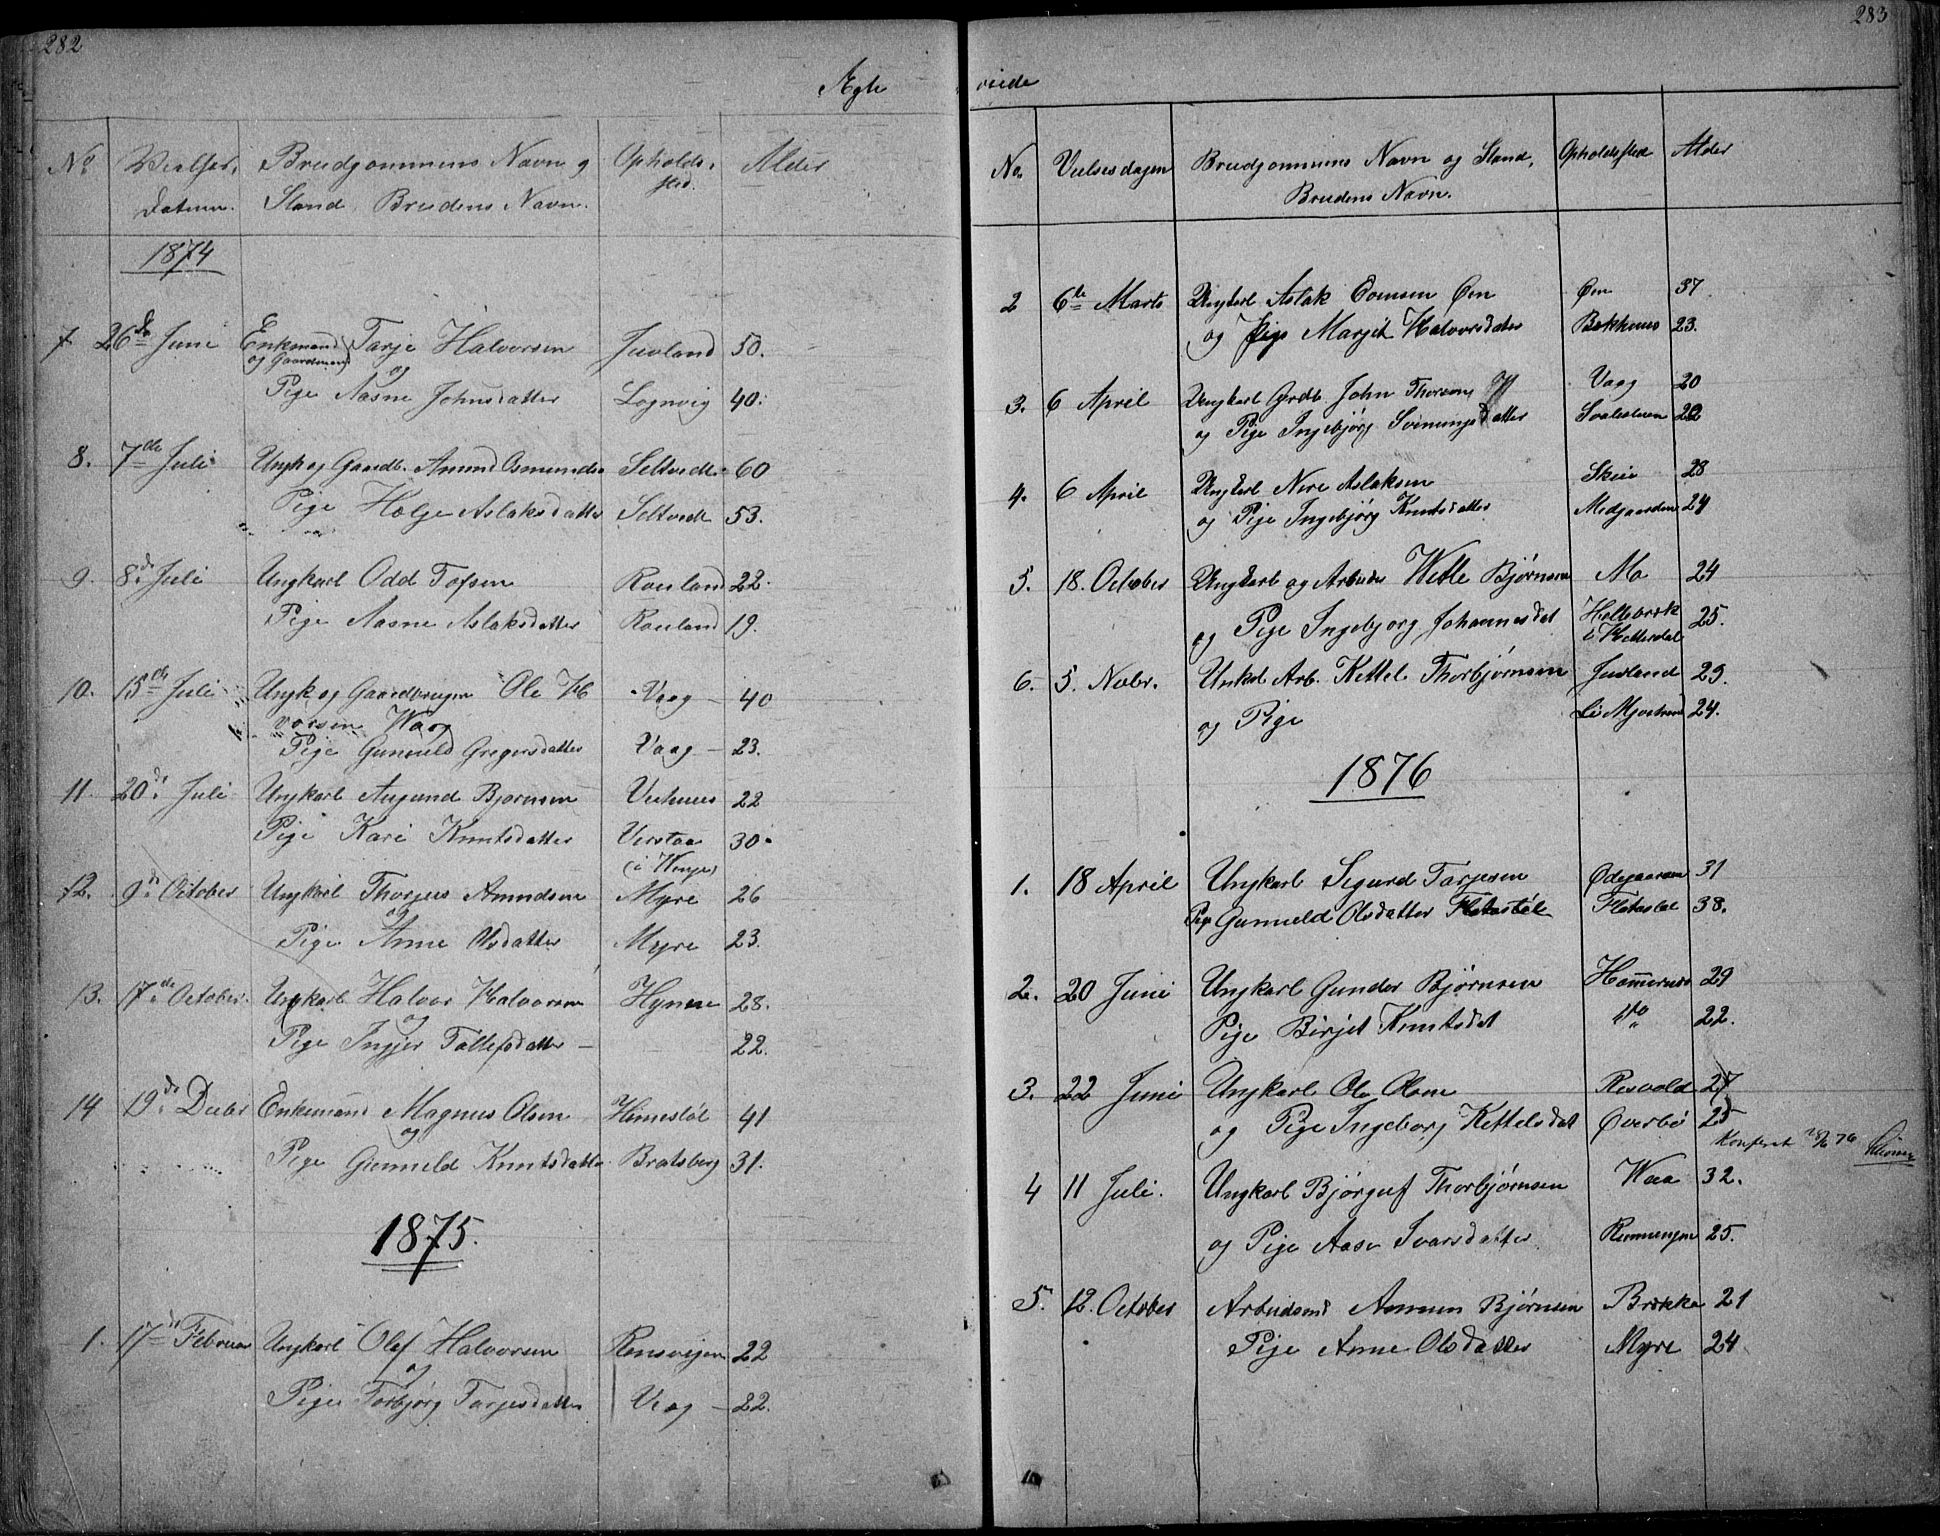 282
Ægte
No
Datum.
Brudgommens Navn og
Stand, Brudens Navn.
Opholds-
sted.
Alder
1874
7 26de Juni Enkemand Tarje Halvorsen Juvland 50.
og Gaardmand
og
Pige Aasne Johnsdatter Lognvig 40.
8. 7de Juli Ungk og Gaardb. Amund Osmundsen Seltveit 60
Pige Helge Aslaksdatter Seltveit 53.
9. 8de Juli Ungkarl Odd Tofsen Rauland 22.
Pige Aasne Aslaksdatter Rauland 19.
10. 15de Juli Ungk og Gaardbruger Ole H Vaag 40
vorsen Waag
Pige Gunnild Gregersdatter Vaag 23.
11 20de Juli Ungkarl Augund Bjørnsen Veehuus 22
Pige Kari Knutsdatter Verstaa 30.
(i Winje)
12. 9de October Ungkarl Thorjus Amundsen Myre 26
og
Pige Anne Olsdatter Myre 23.
13. 17de October Ungkarl Halvor Halvorsen 28.
og
Pige Ingjer Tallefsdatter 22.
14 19de Decbr Enkemand Magnus Olsen 41
og
Pige Gunnild Knutsdatter Bratsberg 31.
1875.
1. 17de Februar Ungkarl Olaf Halvorsen 22
og
Pige Torbjørg Tarjesdatter Vaag 22.
283
viede
No. Vielsesdagen Brudgommens Navn og Stand, Opholdssted Alder
Brudens Navn.
2 6te Marts Ungkarl Aslak Øen 37
og Pige Marjit Halvorsdatter Bekhuus 23.
3. 6 April Ungkarl Grdb. John Thorsen Vaag 20
og Pige Ingebjørg Svenungsdatter 22
4. 6 April Ungkarl Nere Aslaksen Skeie 28
og Pige Ingebjørg Knutsdatter Medgaarden 24
5. 18. October Ungkarl og Arbeider Wetle Bjørnsen Mo 24
og Pige Ingebjorg Johannesdat 25.
i Hitterdal
6. 5. Novbr. Unkrl Arb. Kettel Thorbjørnsen Juvland 23.
og Pige 24.
1876
1. 18 April Ungkarl Sigurd Tarjesen Ødegaarden 31
Pige Gunnild Olsdatter Flatastøl Flatastøl 38.
2. 20 Juni Ungkarl Gunder Bjørnsen 29
Pige Birjit Knutsdat do 22.
3. 22 Juni Ungkarl Ole Olsen Resvold 27
og Pige Ingeborg Kettelsdat Øverbø 25
Konferet 28/6 76
4 11 Juli. Ungkarl Bjørguf Thorbjørnsen Waa 32.
og Pige Aase Ivarsdatter Rinningen 25.
5. 12. October Arbeidsmd Ammun Bjørnsen Brokke 21
Pige Anne Olsdatter Myre 24